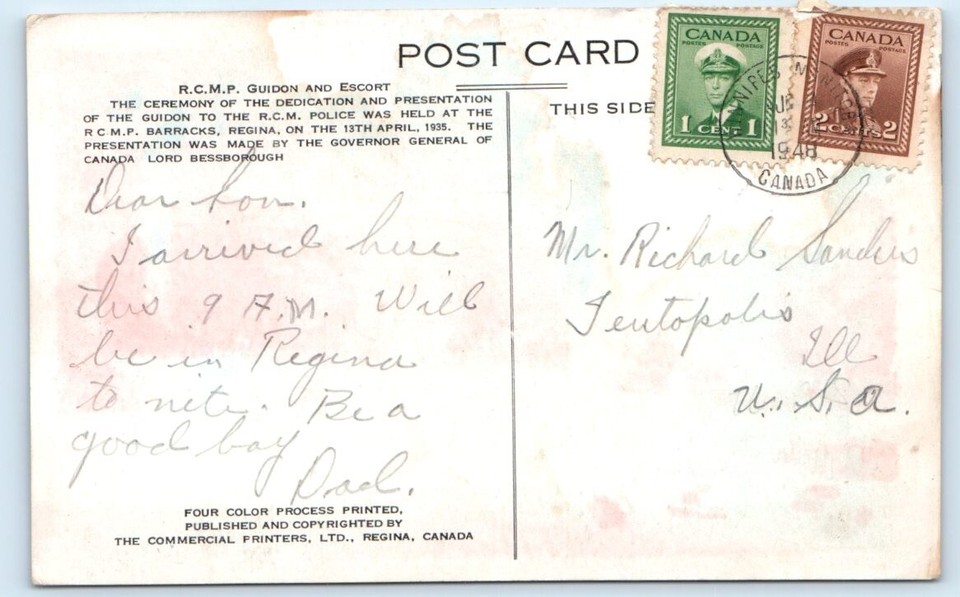 POST CARD
R.C.M.P. GUIDON AND ESCORT
THE CEREMONY OF THE DEDICATION AND PRESENTATION
OF THE GUIDON TO THE R.C.M. POLICE WAS HELD AT THE
R C M.P. BARRACKS, REGINA, ON THE 13TH APRIL, 1935. THE
PRESENTATION WAS MADE BY THE GOVERNOR GENERAL OF
CANADA LORD BESSBOROUGH
Dear Son.
I arrived here
this 9 A.M. Will
be in Regina
to nite. Be a
good boy
Dad.
FOUR COLOR PROCESS PRINTED,
PUBLISHED AND COPYRIGHTED BY
THE COMMERCIAL PRINTERS, LTD., REGINA, CANADA
THIS SIDE
CANADA
POSTES POSTAGE
1 CENT 1
CANADA
POSTES POSTAGE
2 CENTS 2
13
1948
CANADA
Mr. Richard Sanders
Teutopolis
Ill
U.S.A.